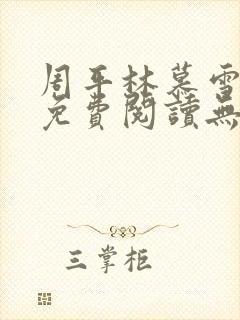 周平林慕雪
免費閱讀無
三掌柜